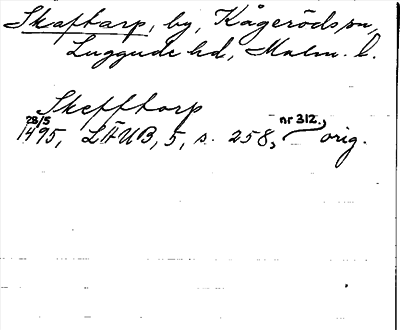 Skaftarp, by, Kågeröds sn,
Luggude hd, Malm. l.
Skefftorp
28/5
1495, LÄUB, 5, s. 258, nr 312., orig.